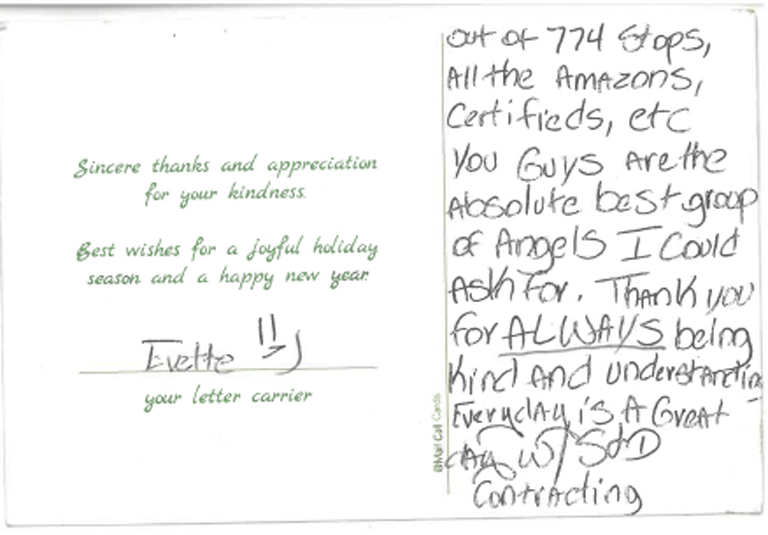 Sincere thanks and appreciation
for your kindness.
Best wishes for a joyful holiday
season and a happy new year.
Ivette
your letter carrier
©Mail Call Cards
out of 774 Stops,
All the Amazons,
Certifieds, etc
You Guys Are the
Absolute best group
of Angels I Could
Ask For. Thank you
for ALWAYS being
Kind and understanding
Everyday is A Great
day w/ S&D
Contracting